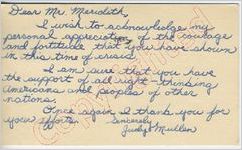 Dear Mr. Meredith,
I wish to acknowledge my
personal appreciation of the courage
and fortitude that you have shown
in this time of crisis.
I am sure that you have
the support of all right thinking
Americans and peoples of other
nations.
Once again I thank you for
your efforts.
Sincerely
Judy Mullen